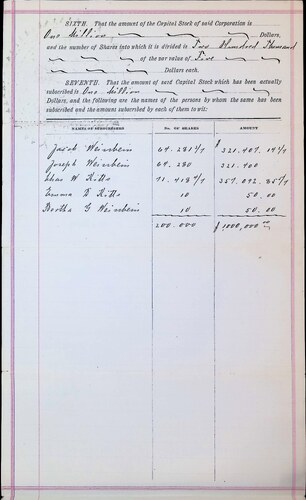 SIXTH. That the amount of the Capital Stock of said Corporation is
One Million Dollars,
and the number of Shares into which it is divided is Two Hundred Thousand
of the par value of Five
Dollars each.
SEVENTH. That the amount of said Capital Stock which has been actually
subscribed is One Million
Dollars, and the following are the names of the persons by whom the same has been
subscribed and the amount subscribed by each of them to wit:
NAMES OF SUBSCRIBERS No. OF SHARES AMOUNT
Jacob Weinbein $
Joseph Weinbein 64.280 321.400
W Kitto
Emma Kitto 10 50.00
Bertha G Weinbein 10 50.00
200.000 $1000,000